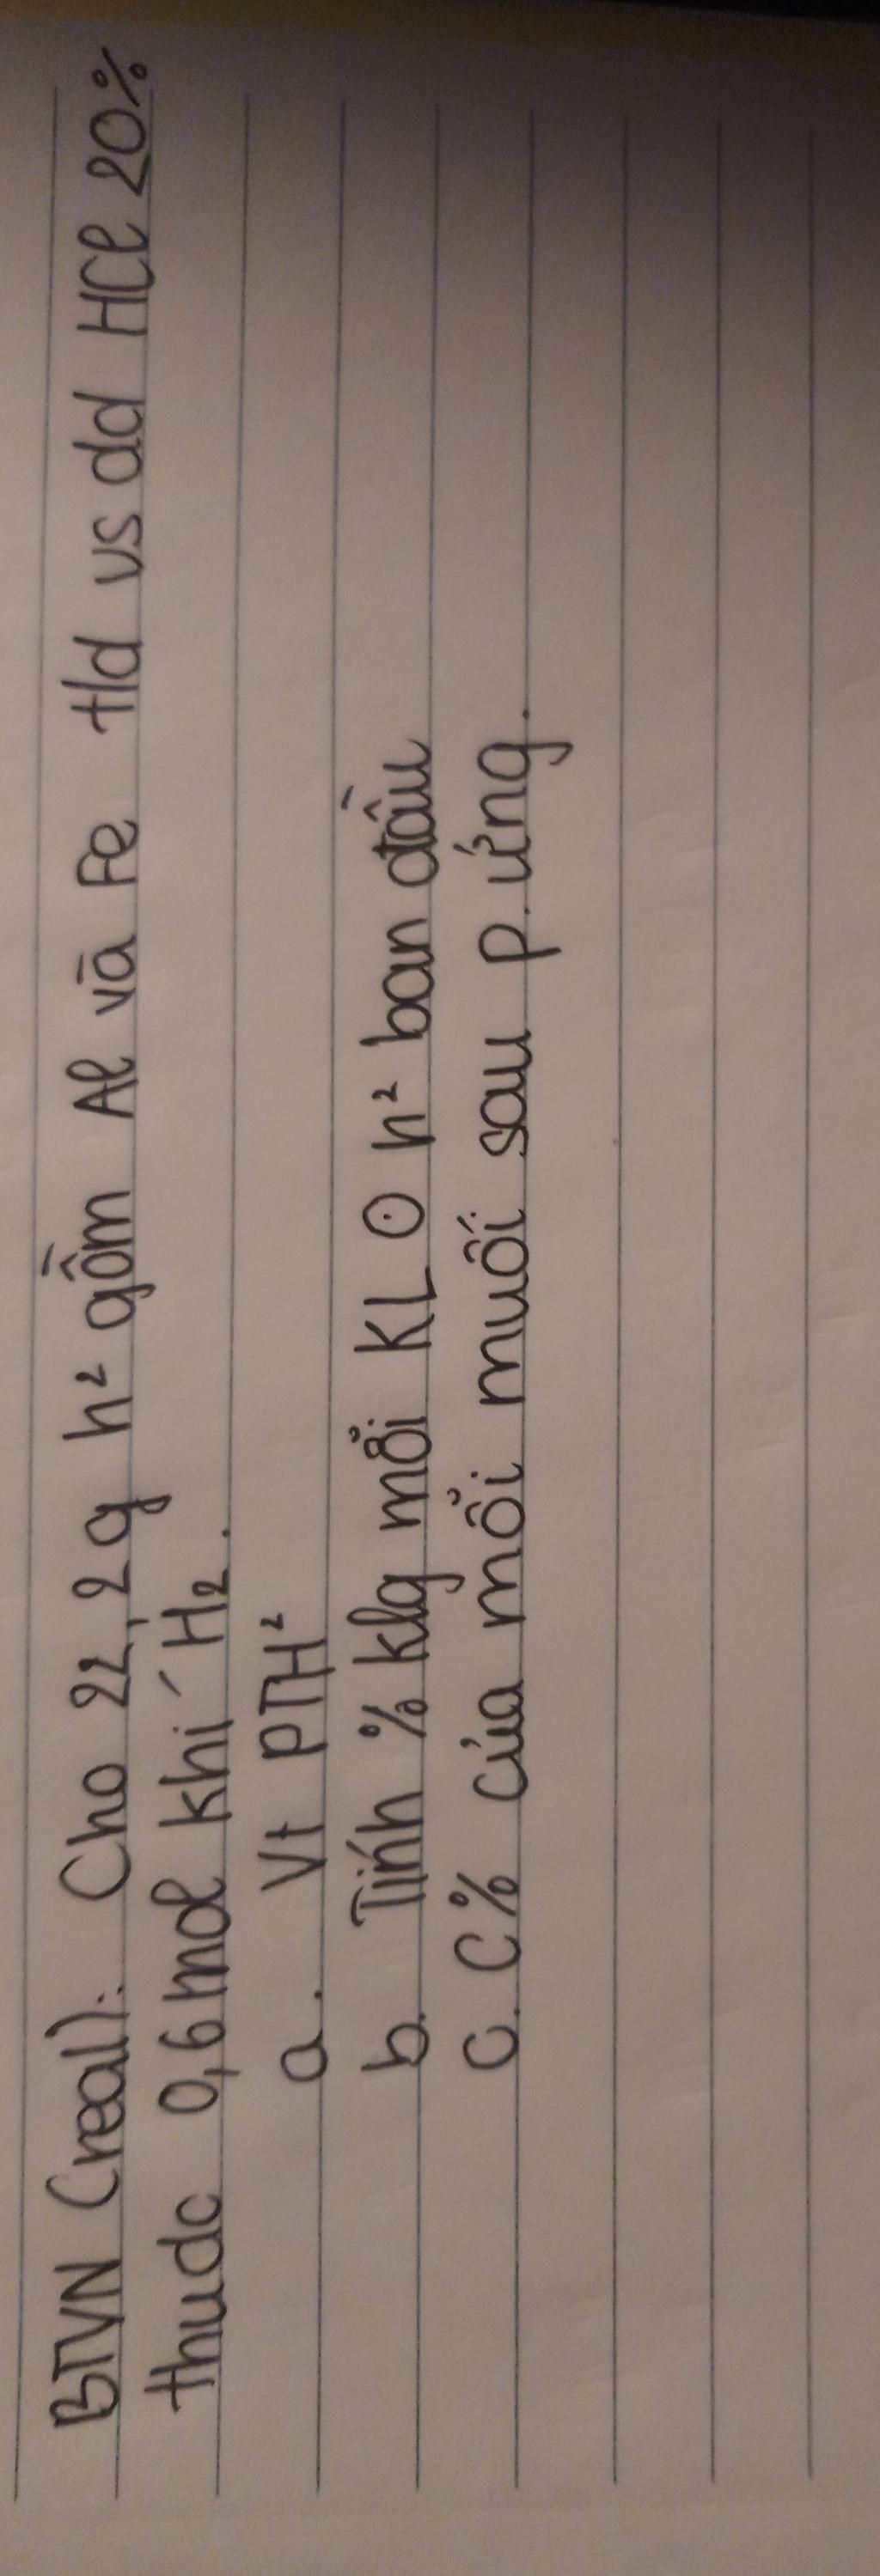 BTVN (real): Cho 22,2g h² gồm Al và Fe t/d vs dd HCl 20%
thuđc 0,6 mol khí H₂.
a. Vt PTH²
b. Tính % klg mỗi KL ⊙ h² ban đầu
C. C% của mỗi muối sau p.ứng.